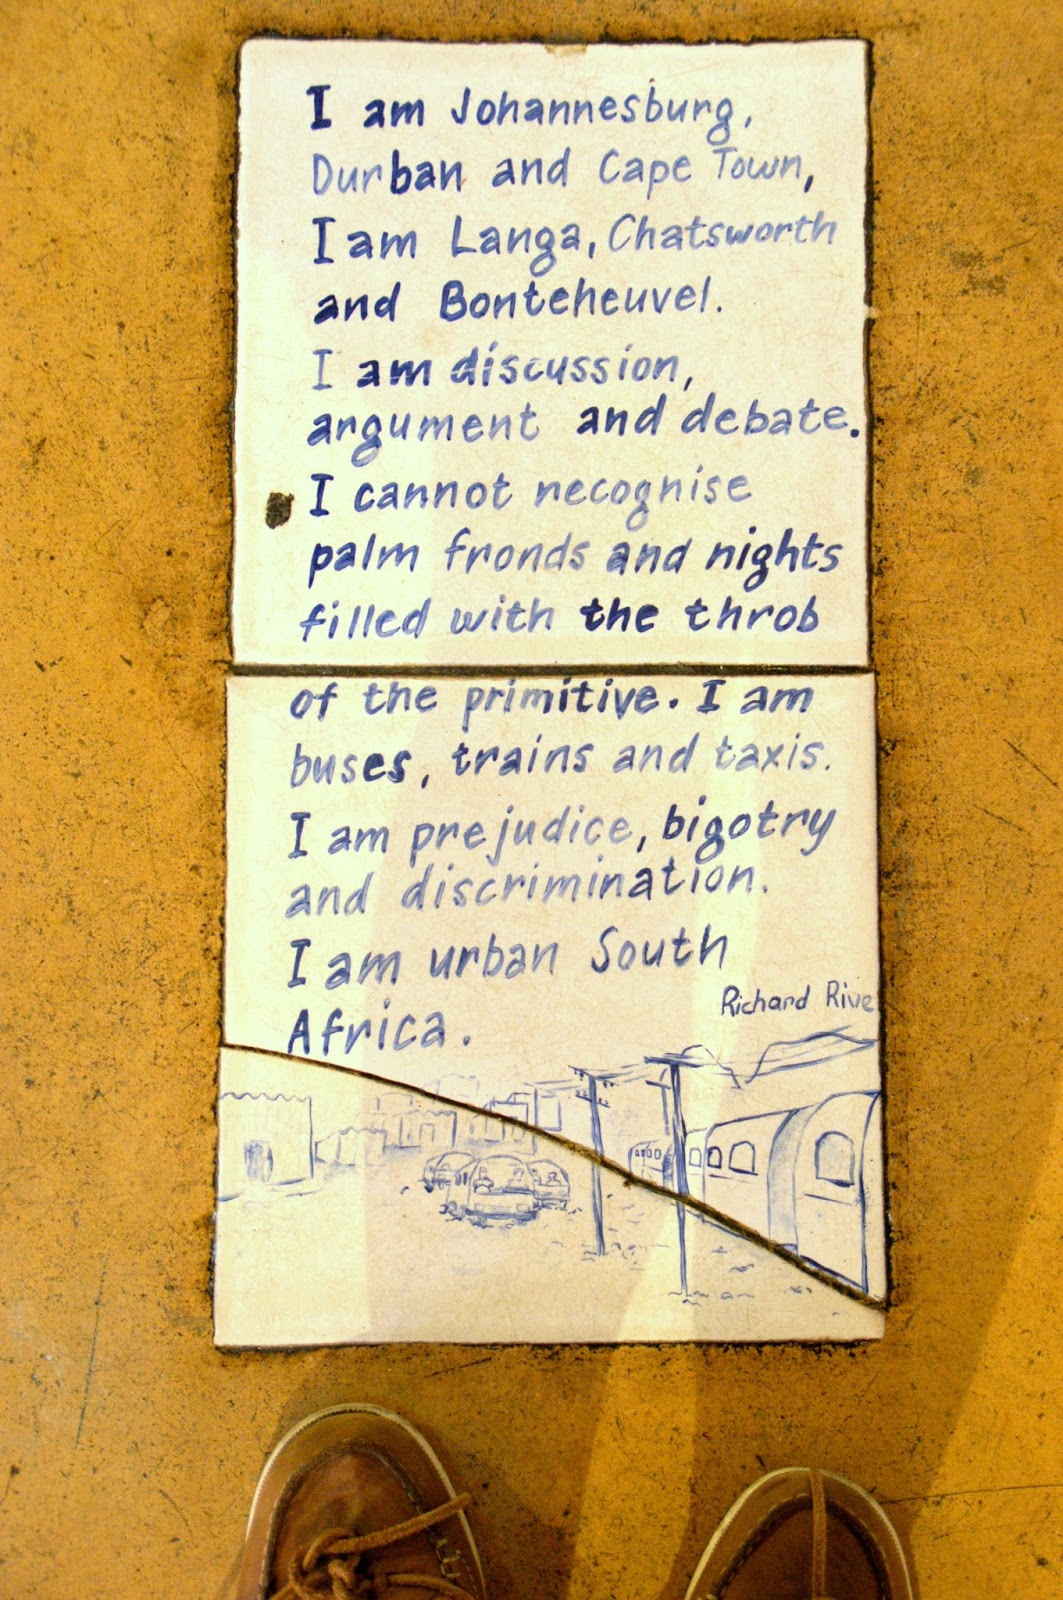 I am Johannesburg,
Durban and Cape Town,
I am Langa, Chatsworth
and Bonteheuvel.
I am discussion,
argument and debate.
I cannot recognise
palm fronds and nights
filled with the throb
of the primitive. I am
buses, trains and taxis.
I am prejudice, bigotry
and discrimination.
I am urban South
Africa.
Richard Rive